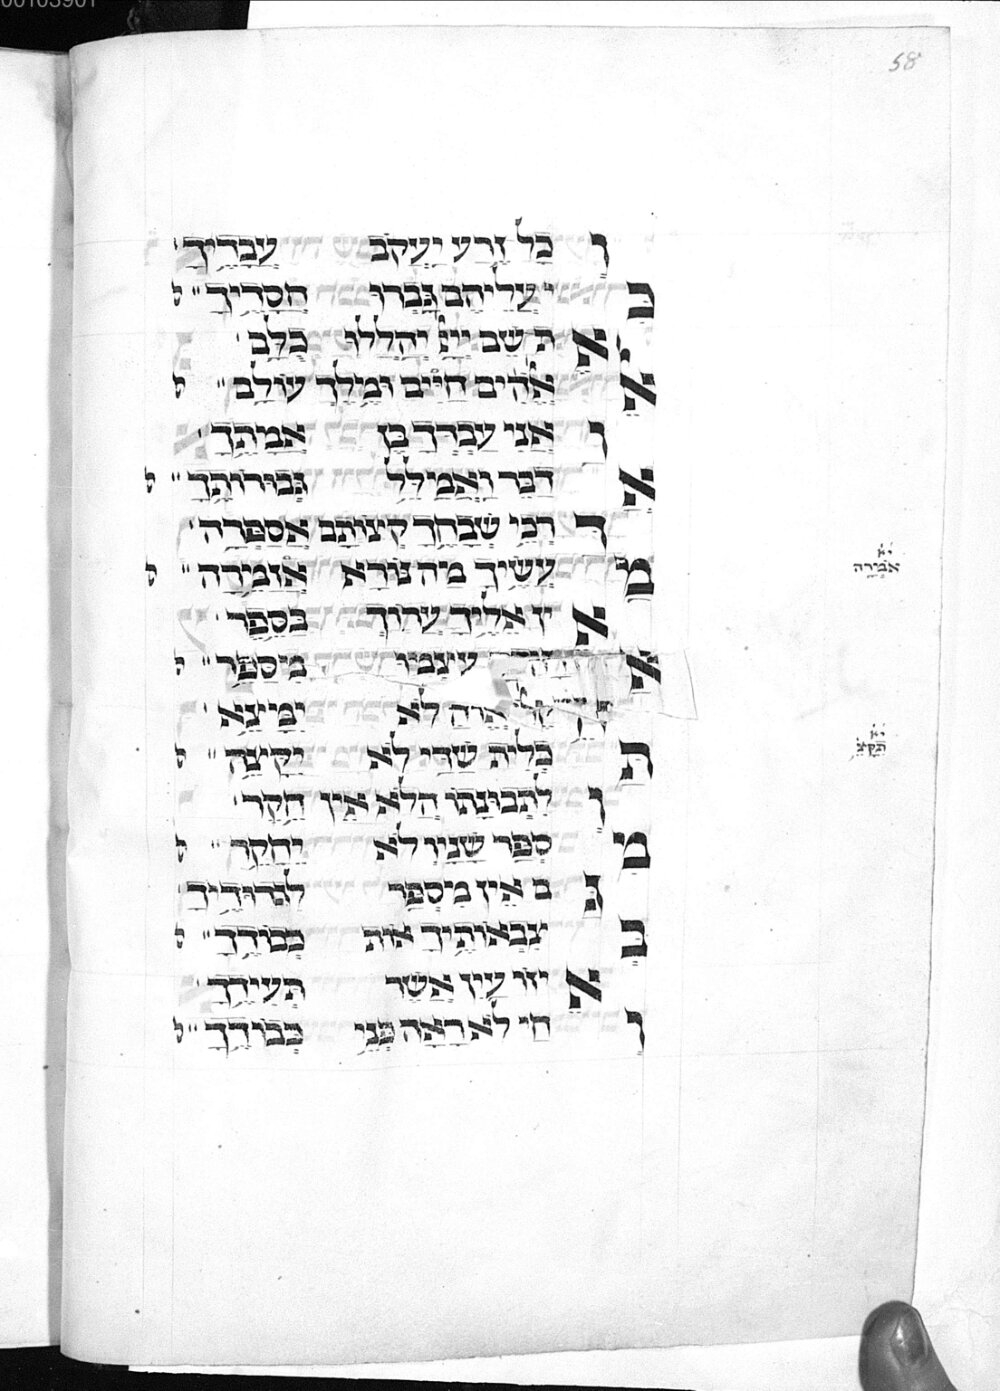 58
וְ כָל זֶרַע יַעֲקֹב עֲבָדֶיךָ
בָּ עֲלֵיהֶם גָּבְרוּ חֲסָדֶיךָ
אַ תְּ שַׁב יְיָ יְהַלְלוּ כֻּלָּם
אֱ אֱלֹהִים חַיִּים וּמֶלֶךְ עוֹלָם
וַ אֲנִי עַבְדְּךָ בֶּן אֲמָתֶךָ
אֲ דַבֵּר וַאֲמַלֵּל גְּבוּרוֹתֶיךָ
דְּ רָכֵי שִׁבְחֲךָ קְצוֹתָם אֲסַפְּרָה
מַ עֲשֶׂיךָ מַה נּוֹרָא אֲזַמְּרָה
אֵ ין אֵלֶיךָ עֲרוֹךְ בְּסֵפֶר
עָצְמוּ מִסַּפֵּר
לֹא יִמָּצֵא
תַּ כְלִית שַׁדַּי לֹא יִקָּצֶה
וְ לִתְבוּנָתוֹ הֲלֹא אֵין חֵקֶר
מִ סְפַּר שָׁנָיו לֹא יֵחָקֵר
גַּ ם אֵין מִסְפָּר לִגְדוּדֶיךָ
בְּ צִבְאוֹתֶיךָ אוֹת כְּבוֹדֶךָ
אֵ יזוֹ עַיִן אֲשֶׁר תְּעִידֶךָ
וְ חַי לֹא רָאָה פְּנֵי כְבוֹדֶךָ